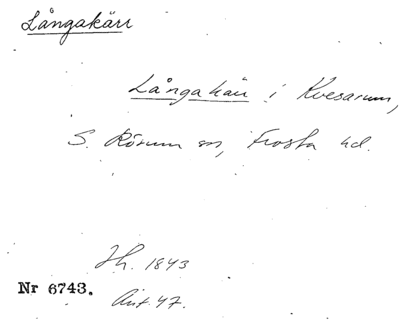 Långakärr
Långakärr i Kvesarum,
S. Rörum sn, Frosta hd.
Jh. 1843
Nr 6743.
Ant. 47.